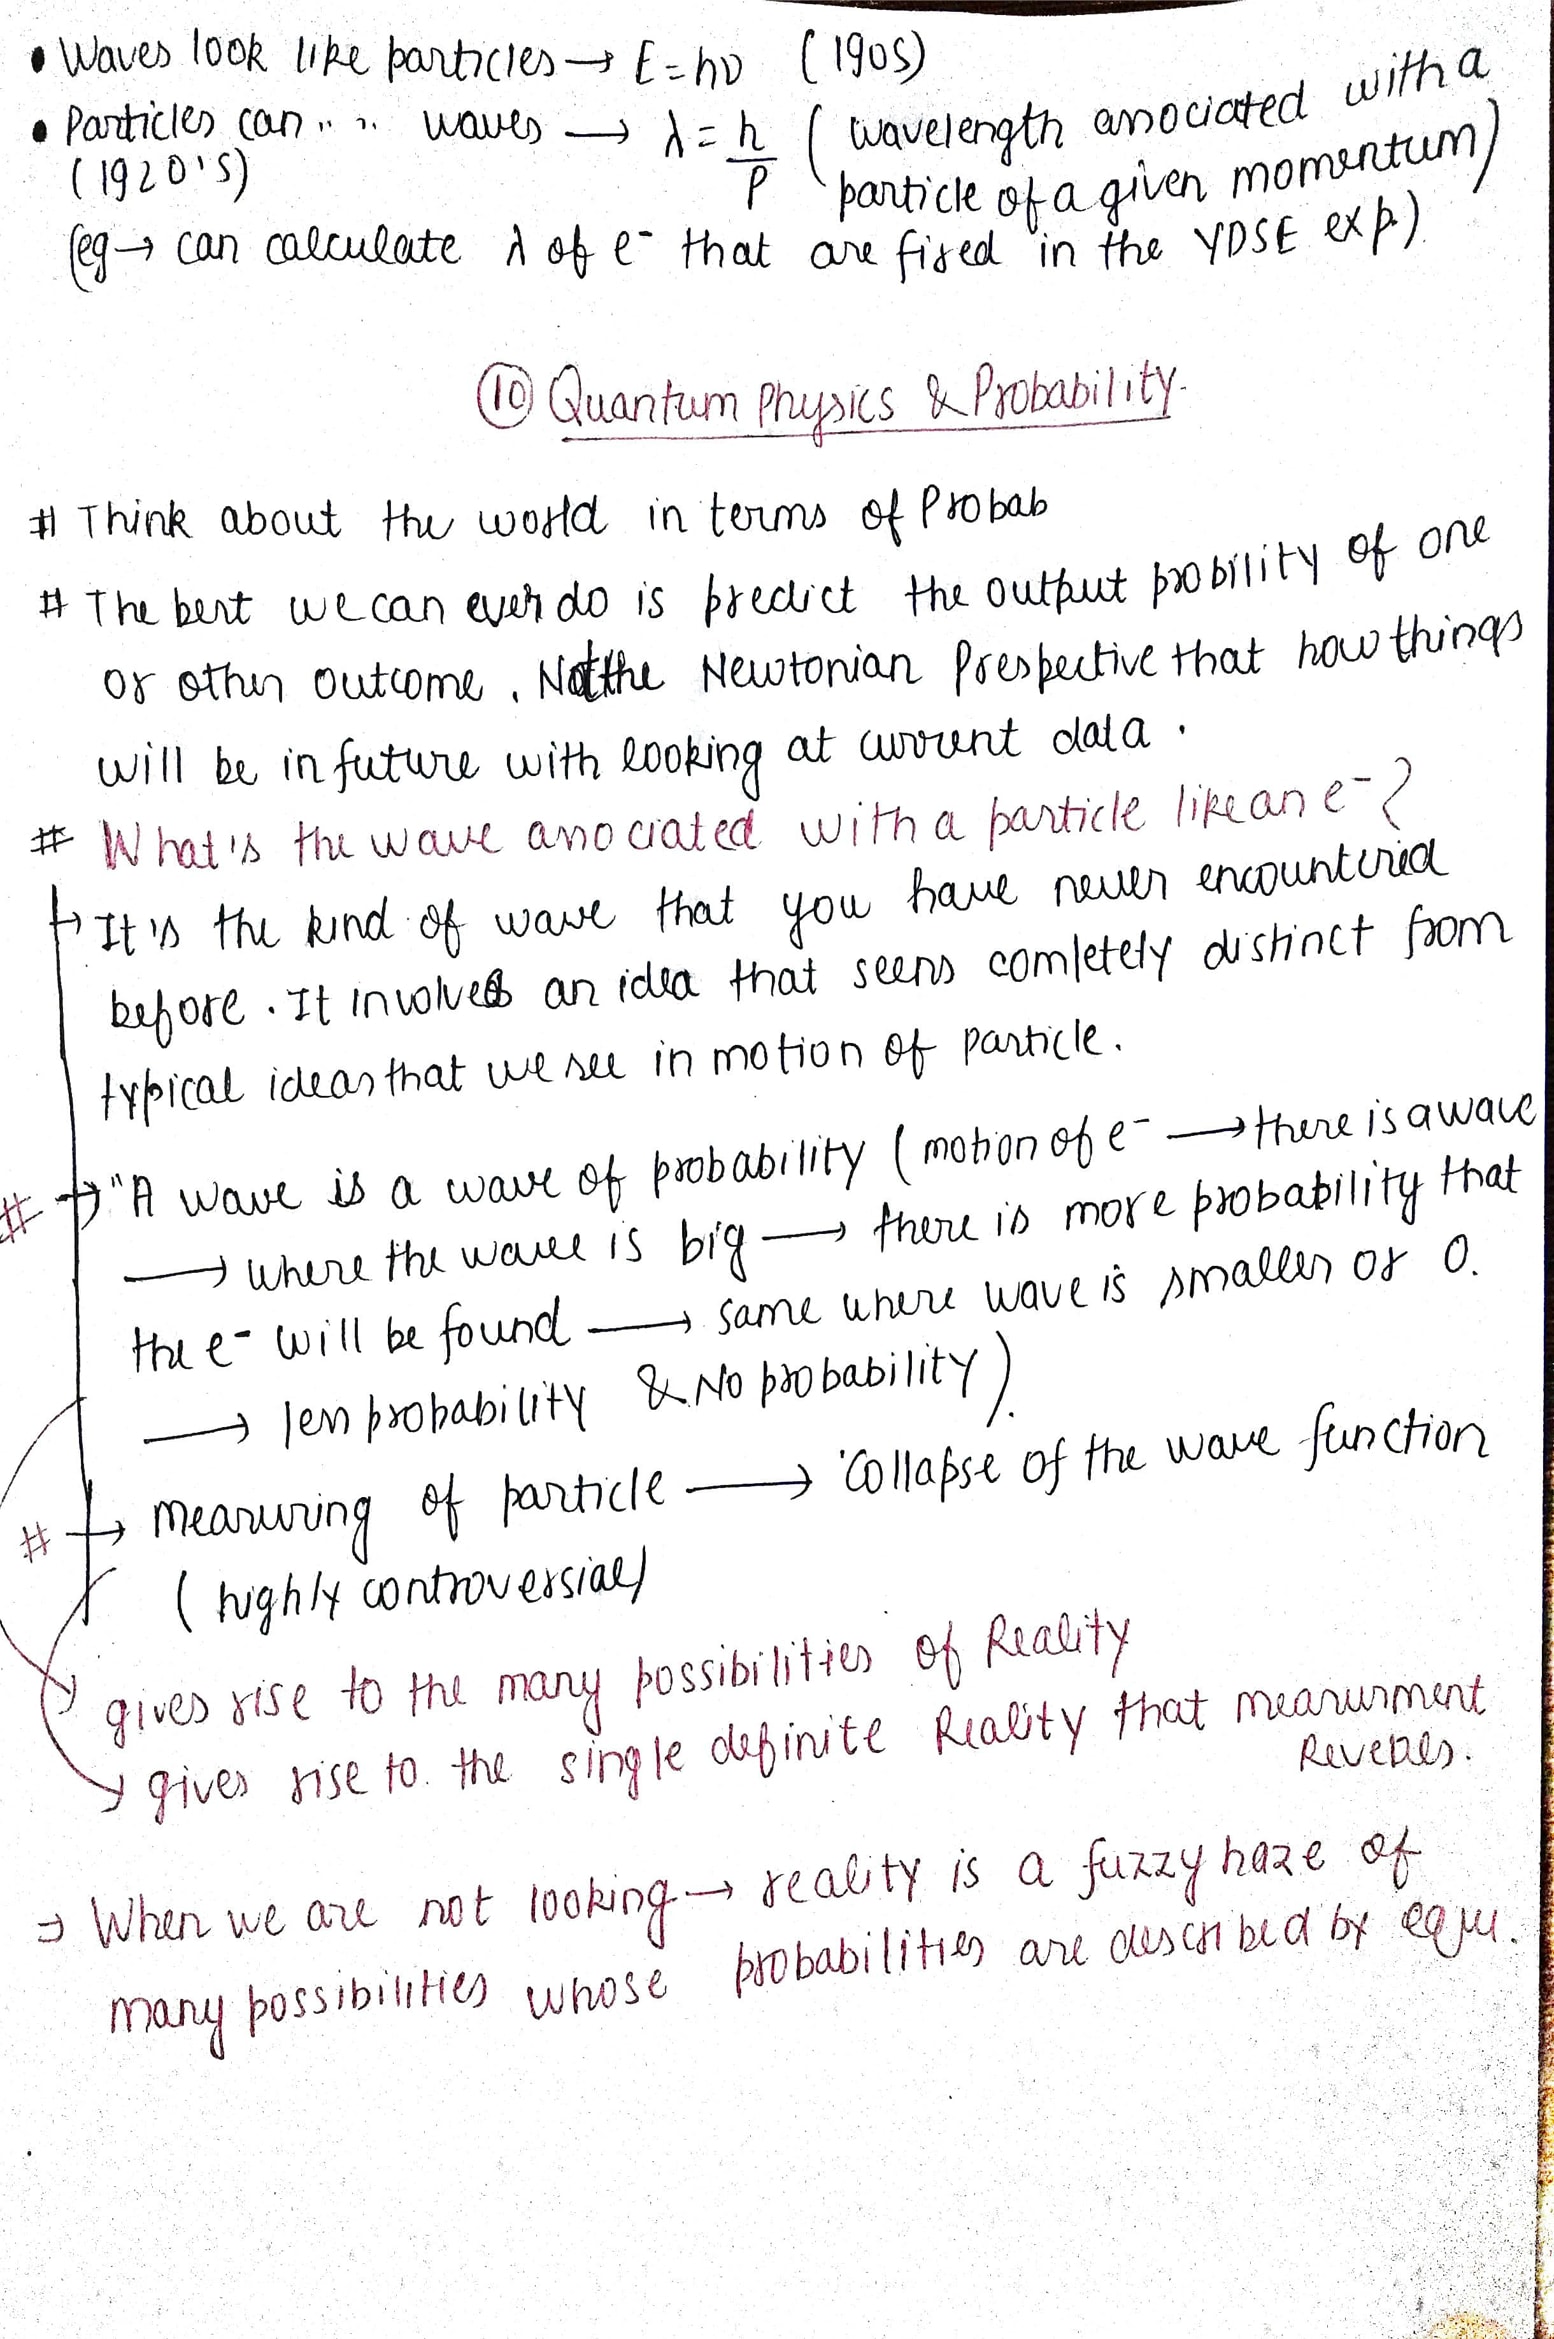 • Waves look like particles → E=hν (1905)
• Particles can " " waves → λ = h/p (wavelength associated with a particle of a given momentum)
(1920's)
(eg → can calculate λ of e⁻ that are fired in the YDSE exp.)
⑩ Quantum Physics & Probability.
# Think about the world in terms of Probab
# The best we can ever do is predict the output probility of one
or other outcome. Not the Newtonian Prespective that how things
will be in future with looking at current data.
# What's the wave associated with a particle like an e⁻?
↳ It's the kind of wave that you have never encountered
before. It involves an idea that seems comletely distinct from
typical ideas that we see in motion of particle.
# → "A wave is a wave of probability (motion of e⁻ → there is a wave
→ where the wave is big → there is more probability that
the e⁻ will be found → same where wave is smaller or 0.
→ less probability & No probability).
# → measuring of particle → 'Collapse of the wave function
(highly controversial)
gives rise to the many possibilities of Reality
gives rise to the single definite Reality that measurment
Reveales.
⇒ When we are not looking → reality is a fuzzy haze of
many possibilities whose probabilities are described by equ.